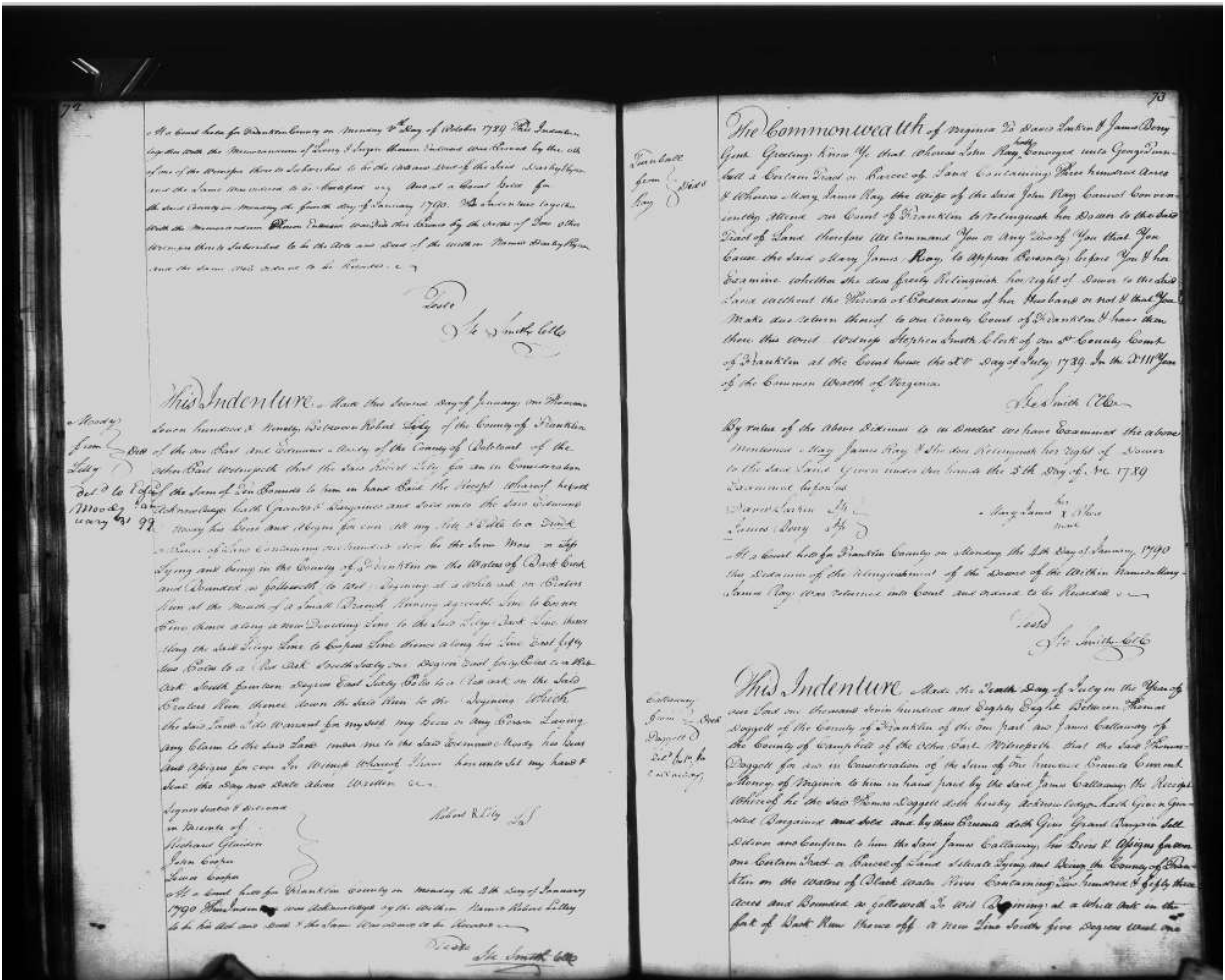 72
At a Court held for Franklin County on Monday 5th Day of October 1789 This Indenture
together with the Memorandum of Livery & Seizen thereon Endorsed was Proved by the oath
of one of the Witnesses thereto Subscribed to be the Act and Deed of the Said Darby Ryon
and the Same was ordered to be Certified And at a Court held for
the said County on Monday the fourth day of January 1790. The Indenture together
With the Memorandum thereon Endorsed was Further Proved by the oaths of Two other
Witnesses thereto Subscribed to be the Acts and Deed of the within Named Darby Ryon
and the Same was ordered to be Recorded
Teste
Ste Smith ClC
Moody
from
Lilly
Deed
Del.d to Edm
Moody Jan
uary 31 99
This Indenture Made this Second Day of January one Thousand
Seven hundred & Ninety Between Robert Lily of the County of Franklin
of the one Part and Edmund Moody of the County of Botetourt of the
other Part Witnesseth that the said Robert Lily for an in Consideration
of the Sum of Ten Pounds to him in hand Paid the Receipt Whareof he doth
Acknowledge hath Granted & Bargained and Sold unto the Said Edmund
Moody his Heirs and Assigns for ever all my Rite & Title to a Track
or Parcel of Land Containing one hundred Acres be the Same More or Less
Lying and being in the County of Franklin on the Waters of Back Creek
and Bounded as followeth to Wit. Begining at a white oak on Praters
Run at the Mouth of a Small Branch Running agreeable Line to Corner
Pine thence along a new Deviding Line to the Said Lilys Back Line thence
along the Back Lilys Line to Coopers Line thence along his Line East fifty
two Poles to a Oak South Sixty one Degrees East forty Poles to a
oak South fourteen Degrees East Sixty Poles to a oak on the Said
Praters Run thence down the Said Run to the Begining Which
the said Land I do Warant for myself my Heirs or Any Person Laying
any Claim to the Said Land under me to the Said Edmund Moody his Heirs
and Assigns for ever In Witness Whareof I have hereunto Set my hand &
Seal the Day and Date above Written
Signed Sealed & Delivered
in Presents of
Robert R Lily LS
Richard
John Cooper
Cooper
At a Court held for Franklin County on Monday the 4th Day of January
1790 This Indenture was Acknowledged by the Within Named Robert Lilley
to be his Act and Deed & the Same Was ordered to be Recorded
Teste
Ste Smith ClC
73
Turnbull
from
Ray
Deed
The Commonwealth of Virginia To David Larkin & James Berry
Gent Greeting Know Ye that Whereas John Ray hath Conveyed unto George Turn-
bull a Certain Tract or Parcel of Land Containing Three hundred Acres
& Whereas Mary James Ray the Wife of the Said John Ray Cannot Conven-
iently attend our Court of Franklin to relinquish her Dower to the Said
Tract of Land therefore We Command You or Any Two of You that You
Cause the said Mary James Ray to Appear Personly before You & her
Examine whether she does freely Relinquish her right of Dower to the Said
Land without the Threats or Perswasions of her Husband or not & that You
Make due return thereof to our County Court of Franklin & have then
there this writ Witness Stephen Smith Clerk of our Sd County Court
of Franklin at the Court house the XV Day of July 1789. In the XIII Year
of the Common Wealth of Virginia
Ste Smith ClC
By virtue of the above Dedimus to us Directed we have Examined the above
Mentioned Mary James Ray & She does Relinquish her right of Dower
to the Said Land Given under our hands the 5th Day of 1789
Examined before us
David Larkin
James Berry
her
Mary James X Rhea
mark
At a Court held for Franklin County on Monday the 4th Day of January 1790
This Dedamus of the Relinquishment of the Dower of the Within Named Mary
James Ray was returned into Court and ordered to be Recorded
Teste
Ste Smith ClC
Callaway
from
Doggett
Deed
Callaway
This Indenture Made the Tenth Day of July in the Year of
our Lord one thousand Seven hundred and Eighty Eight Between Thomas
Doggett of the County of Franklin of the one part and James Callaway of
the County of Campbell of the Other Part Witnesseth that the Said Thomas
Doggett for and in Consideration of the Sum of One hundred Pounds Current
Money of Virginia to him in hand paid by the said James Callaway the Receipt
Whereof he the Said Thomas Doggett doth hereby Acknowledge hath Given Gran-
ted Bargained and Sold and by these Presents doth Give Grant Bargain Sell
Deliver and Conform to him the Said James Callaway his Heirs & Assigns for ever
one Certain Tract or Parcel of Land Situate Lying and Being the County of Fran-
klin on the Waters of Black Water River Containing Two hundred & fifty three
Acres and Bounded as followeth To Wit Begining at a White oak in the
fork of Back Run thence off a new Line South five Degrees West one